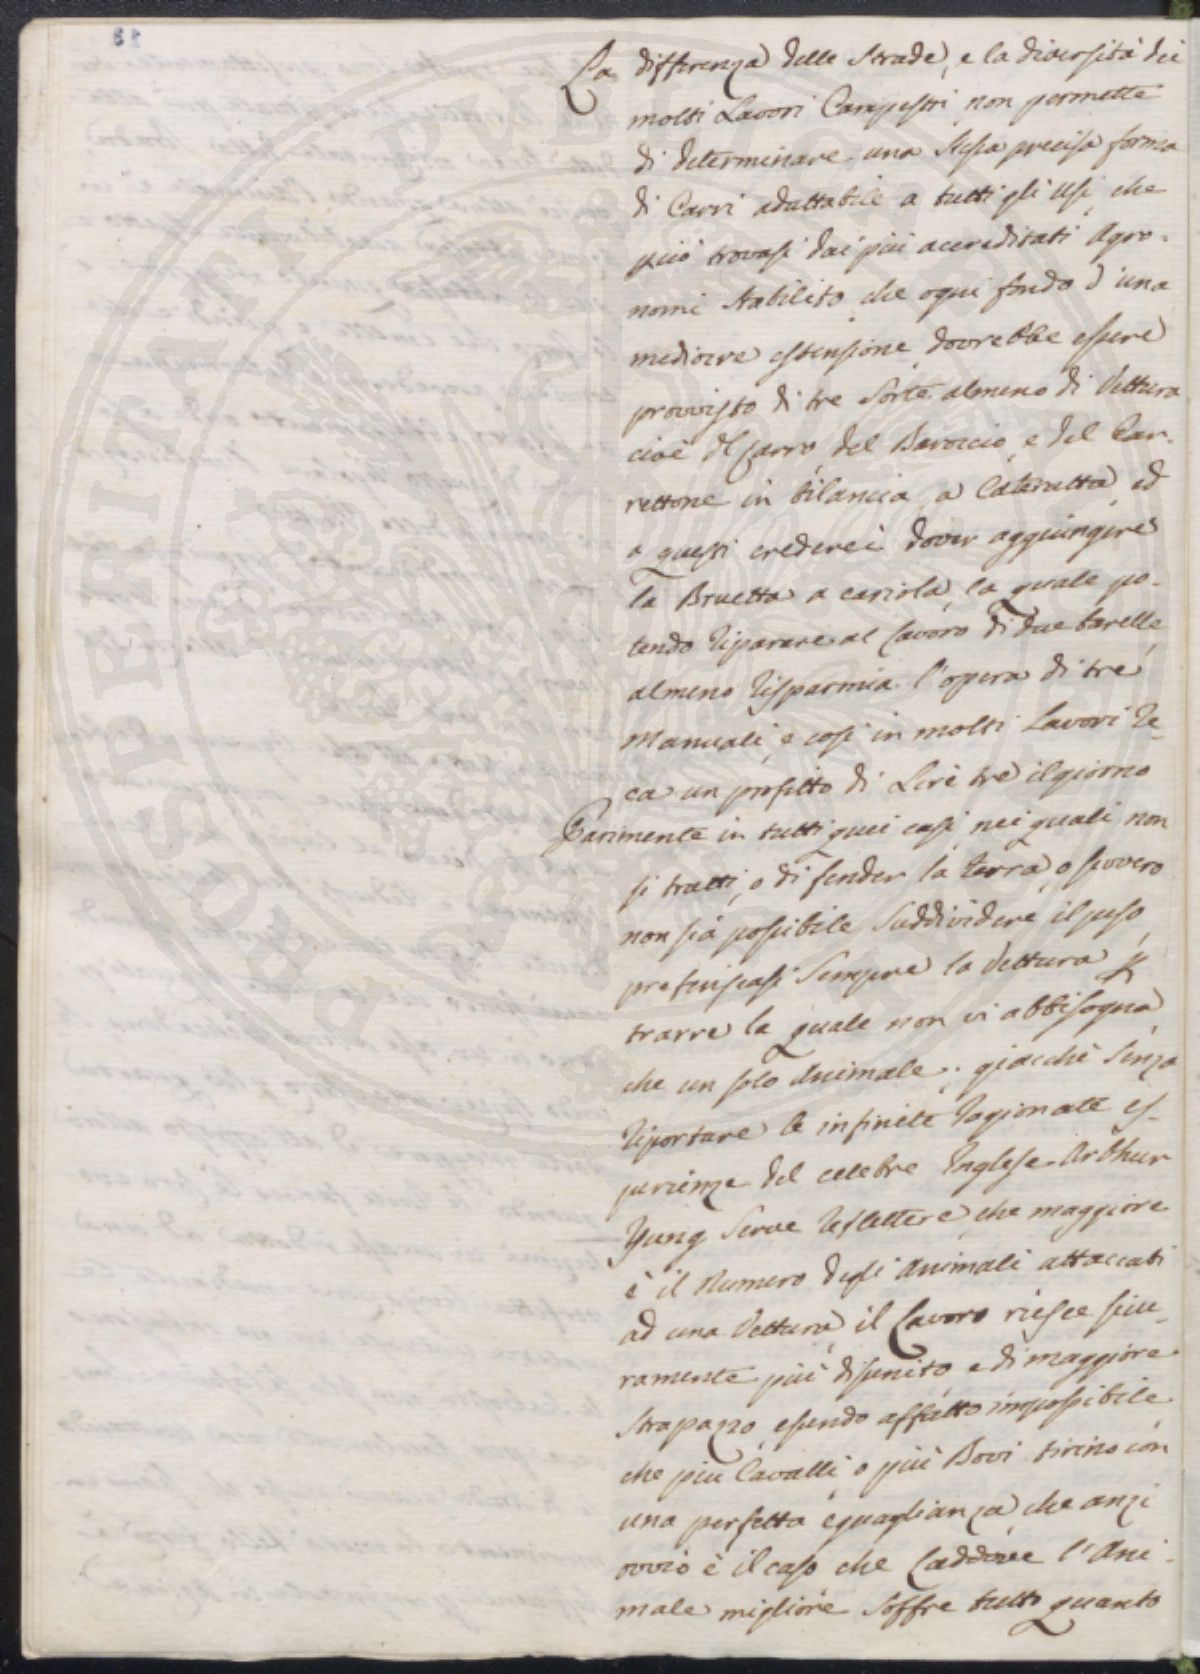 La differenza delle Strade, e la diversità dei
molti Lavori Campestri non permette
di determinare una stessa precisa forma
di Carri adattabile a tutti gli usi, che
più trovasi dai più accreditati Agro-
nomi stabilito che ogni fondo d'una
mediocre estensione dovrebbe essere
provvisto di tre sorte almeno di Vettura
cioè del Carro del Baroccio, e del Car-
rettone in bilancia, a Cateratta, ed
a questi crederei dover aggiungere
la Bruetta a cariola, la quale po-
tendo riparare al lavoro di due barelle,
almeno risparmia l'opera di tre
Manuali, e così in molti Lavori re-
ca un profitto di Lire tre il giorno
Parimente in tutti quei casi nei quali non
si tratti, o di fender la terra, o sivvero
non sia possibile suddividere il peso,
preferiscasi sempre la Vettura p
trarre la quale non vi abbisogna
che un solo Animale; giacchè senza
riportare le infinite ragionate es-
perienze del celebre Inglese Arthur
Yung serve reflettere, che maggiore
è il Numero degli Animali attaccati
ad una Vettura, il Lavoro riesce sicu-
ramente più disunito e di maggiore
strapazzo essendo affatto impossibile
che più Cavalli, o più Bovi tirino con
una perfetta eguaglianza, che anzi
ovvio è il caso che laddove l'Ani-
male migliore soffre tutto quanto
PROSPERITATI PUBLICAE